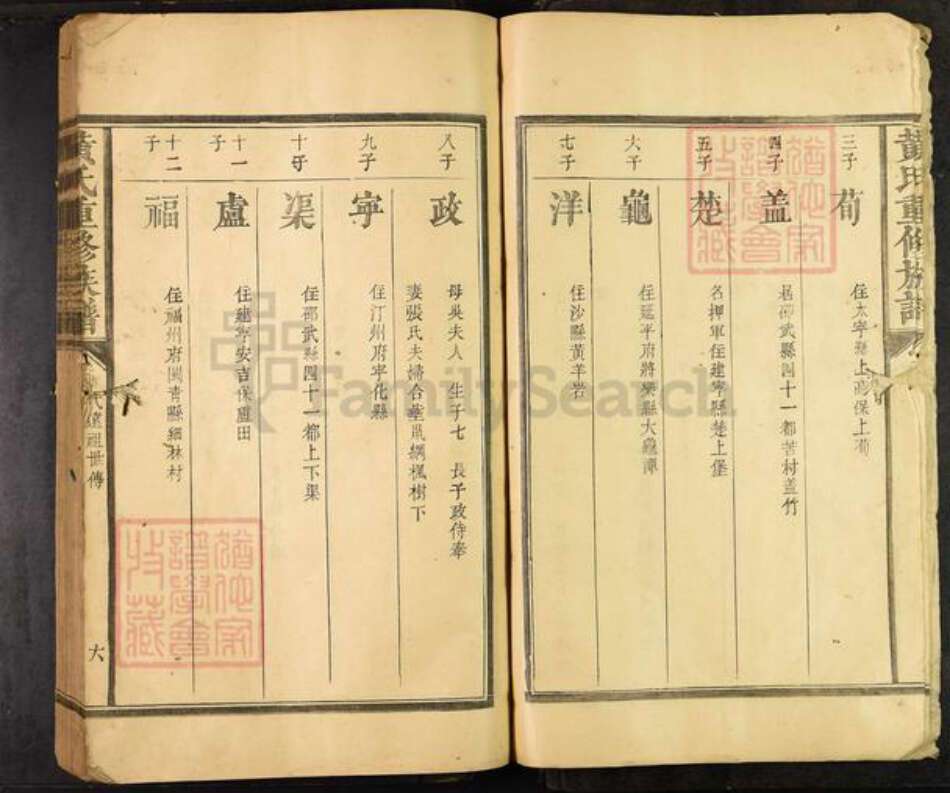 黃氏重修族譜
三子
荀
住太寧縣上高保上荀
四子
盖
居邵武縣四十一都苦村盖竹
五子
楚
名押軍住建寧縣楚上堡
六子
龜
住延平府將樂縣大龜潭
七子
洋
住沙縣黃羊岩
八子
政
母吳夫人 生子七 長子政侍奉
妻張氏夫婦合塟凧網楓樹下
九子
寜
住汀州府寧化縣
十子
渠
住邵武縣四十一都上下渠
十一子
盧
住建寧安吉保盧田
十二子
福
住福州府閩青縣細林村
黃氏重修族譜
氏遠祖世傳
六
猶他家
譜學會
收藏
猶他家
譜學會
收藏
FamilySearch